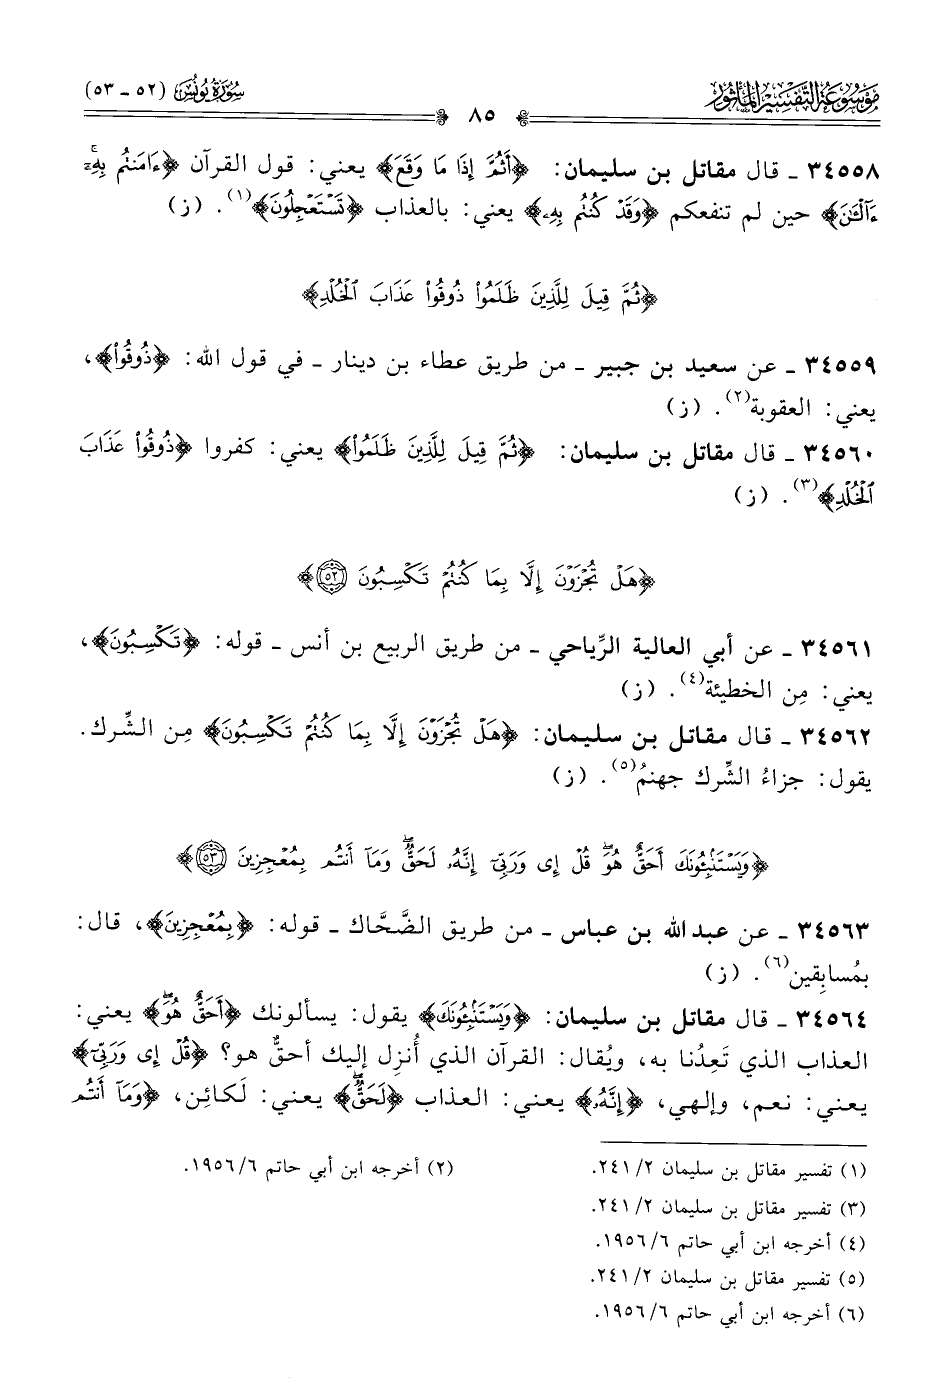 مَوْسُوعَة التَّفْسِير المَأْثُور
٨٥
سُورَةُ يُونُسَ (٥٢ - ٥٣)
٣٤٥٥٨ ـ قال مقاتل بن سليمان: ﴿أَثُمَّ إِذَا مَا وَقَعَ﴾ يعني: قول القرآن ﴿ءَامَنتُم بِهِۦٓ
ءَآلْـَٰٔنَ﴾ حين لم تنفعكم ﴿وَقَدْ كُنتُم بِهِۦ﴾ يعني: بالعذاب ﴿تَسْتَعْجِلُونَ﴾(١). (ز)
﴿ثُمَّ قِيلَ لِلَّذِينَ ظَلَمُوا۟ ذُوقُوا۟ عَذَابَ ٱلْخُلْدِ﴾
٣٤٥٥٩ ـ عن سعيد بن جبير ـ من طريق عطاء بن دينار ـ في قول الله: ﴿ذُوقُوا۟﴾،
يعني: العقوبة(٢). (ز)
٣٤٥٦٠ ـ قال مقاتل بن سليمان: ﴿ثُمَّ قِيلَ لِلَّذِينَ ظَلَمُوا۟﴾ يعني: كفروا ﴿ذُوقُوا۟ عَذَابَ
ٱلْخُلْدِ﴾(٣). (ز)
﴿هَلْ تُجْزَوْنَ إِلَّا بِمَا كُنتُمْ تَكْسِبُونَ ٥٢﴾
٣٤٥٦١ ـ عن أبي العالية الرِّياحي ـ من طريق الربيع بن أنس ـ قوله: ﴿تَكْسِبُونَ﴾،
يعني: مِن الخطيئة(٤). (ز)
٣٤٥٦٢ ـ قال مقاتل بن سليمان: ﴿هَلْ تُجْزَوْنَ إِلَّا بِمَا كُنتُمْ تَكْسِبُونَ﴾ مِن الشِّرك.
يقول: جزاءُ الشِّرك جهنمُ(٥). (ز)
﴿وَيَسْتَنۢبِـُٔونَكَ أَحَقٌّ هُوَ ۖ قُلْ إِى وَرَبِّىٓ إِنَّهُۥ لَحَقٌّ ۖ وَمَآ أَنتُم بِمُعْجِزِينَ ٥٣﴾
٣٤٥٦٣ ـ عن عبد الله بن عباس ـ من طريق الضَّحَّاك ـ قوله: ﴿بِمُعْجِزِينَ﴾، قال:
بمُسابِقين(٦). (ز)
٣٤٥٦٤ ـ قال مقاتل بن سليمان: ﴿وَيَسْتَنۢبِـُٔونَكَ﴾ يقول: يسألونك ﴿أَحَقٌّ هُوَ ۖ﴾ يعني:
العذاب الذي تَعِدُنا به، ويُقال: القرآن الذي أُنزِل إليك أحقٌّ هو؟ ﴿قُلْ إِى وَرَبِّىٓ﴾
يعني: نعم، وإلهي، ﴿إِنَّهُۥ﴾ يعني: العذاب ﴿لَحَقٌّ ۖ﴾ يعني: لَكائِن، ﴿وَمَآ أَنتُم
(١) تفسير مقاتل بن سليمان ٢/ ٢٤١.
(٢) أخرجه ابن أبي حاتم ٦/ ١٩٥٦.
(٣) تفسير مقاتل بن سليمان ٢/ ٢٤١.
(٤) أخرجه ابن أبي حاتم ٦/ ١٩٥٦.
(٥) تفسير مقاتل بن سليمان ٢/ ٢٤١.
(٦) أخرجه ابن أبي حاتم ٦/ ١٩٥٦.